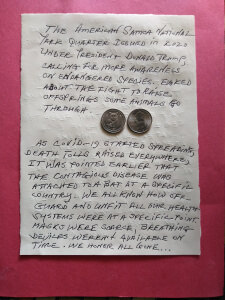 THE AMERICAN SAMOA NATIONAL
PARK QUARTER ISSUED IN 2020
UNDER PRESIDENT DONALD TRUMP
CALLING FOR MORE AWARENESS
ON ENDANGERED SPECIES. CARED
ABOUT THE RIGHT TO RAISE
OFFSPRINGS SOME ANIMALS GO
THROUGH
AS COVID-19 STARTED SPREADING,
DEATH TOLLS RAISED EVERYWHERE.
IT WAS POINTED EARLIER THAT
THE CONTAGIOUS DISEASE WAS
ATTACHED TO A BAT AT A SPECIFIC
COUNTRY. WE ALL KNOW HOW OFF
GUARD AND UNFIT ALL OUR HEALTH
SYSTEMS WERE AT A SPECIFIC POINT
MASKS WERE SCARCE, BREATHING
DEVICES WEREN'T AVAILABLE ON
TIME. WE HONOR ALL GONE...